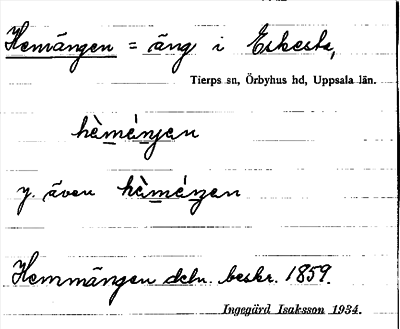 Hemängen = äng i Eskesta,
Tierps sn, Örbyhus hd, Uppsala län.
hèmę́njen
y. även hèmę́ŋen
Hemmängen deln. beskr. 1859.
Ingegärd Isaksson 1934.